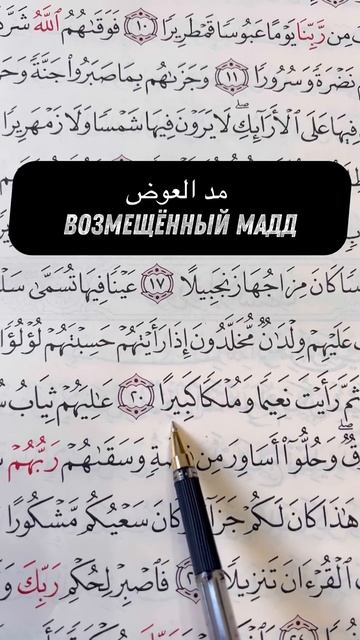 مِن رَّبِّنَا يَوْمًا عَبُوسًا قَمْطَرِيرًا ١٠ فَوَقَىٰهُمُ ٱللَّهُ شَرَّ
نَضْرَةً وَسُرُورًا ١١ وَجَزَىٰهُم بِمَا صَبَرُوا۟ جَنَّةً
فِيهَا عَلَى ٱلْأَرَآئِكِ ۖ لَا يَرَوْنَ فِيهَا شَمْسًا وَلَا زَمْهَرِيرًا
مد العوض
ВОЗМЕЩЁННЫЙ МАДД
كَانَ مِزَاجُهَا زَنجَبِيلًا ١٧ عَيْنًا فِيهَا تُسَمَّىٰ
عَلَيْهِمْ وِلْدَٰنٌ مُّخَلَّدُونَ إِذَا رَأَيْتَهُمْ حَسِبْتَهُمْ لُؤْلُؤًا
ثَمَّ رَأَيْتَ نَعِيمًا وَمُلْكًا كَبِيرًا ٢٠ عَٰلِيَهُمْ ثِيَابُ
وَحُلُّوٓا۟ أَسَاوِرَ مِن وَسَقَىٰهُمْ رَبُّهُمْ
هَٰذَا كَانَ لَكُمْ كَانَ سَعْيُكُم مَّشْكُورًا
ٱلْقُرْءَانَ تَنزِيلًا فَٱصْبِرْ لِحُكْمِ رَبِّكَ